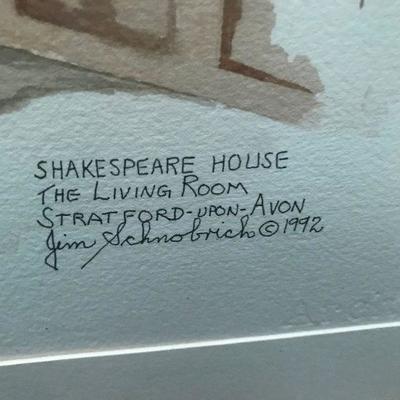 SHAKESPEARE HOUSE
THE LIVING ROOM
STRATFORD-UPON-AVON
Jim Schnobrich © 1992